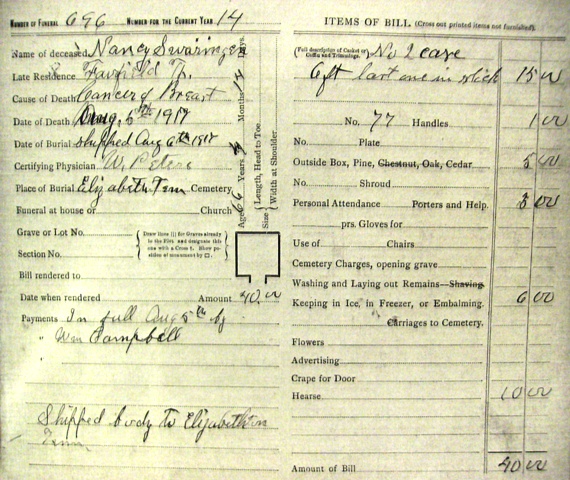 NUMBER OF FUNERAL 696 NUMBER FOR THE CURRENT YEAR 14
Name of deceased Nancy Swaringer
Late Residence Fairfield
Cause of Death Cancer of Breast
Date of Death Aug. 5th 1917
Date of Burial Shipped Aug 6th 1917
Certifying Physician W. P.
Place of Burial Elizabeth Tenn Cemetery
Funeral at house or Church
Grave or Lot No.
Section No.
Draw lines (|) for Graves already in the Plot and designate this one with a Cross †. Show position of monument by □.
Bill rendered to
Date when rendered Amount 40.00
Payments In full Aug 5th by
" Wm Campbell
"
Shipped body to Elizabethton
Tenn
Age 66 Years Months Days.
Size Length, Head to Toe
Width at Shoulder
ITEMS OF BILL (Cross out printed items not furnished).
(Full description of Casket or Coffin and Trimmings). No 2 case
6ft last one in stock 15 00
No. 77 Handles 1 00
No. Plate
Outside Box, Pine, Chestnut, Oak, Cedar 5 00
No. Shroud
Personal Attendance Porters and Help. 3 00
prs. Gloves for
Use of Chairs
Cemetery Charges, opening grave
Washing and Laying out Remains—Shaving
Keeping in Ice, in Freezer, or Embalming. 6 00
Carriages to Cemetery.
Flowers
Advertising
Crape for Door
Hearse 10 00
Amount of Bill 40 00